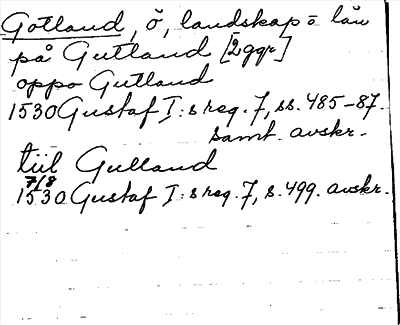 Gotland, ö, landskap o. län
på Gutland [2 ggr]
oppo Gutland
1530 Gustaf I:s reg. 7, ss. 485-87.
samt. avskr.
till Gulland
7/8
1530 Gustaf I:s reg. 7, s. 499. avskr.